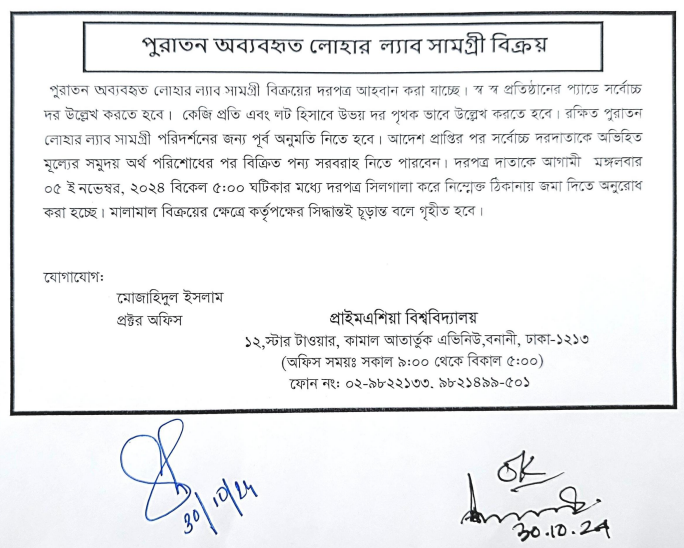 পুরাতন অব্যবহৃত লোহার ল্যাব সামগ্রী বিক্রয়
পুরাতন অব্যবহৃত লোহার ল্যাব সামগ্রী বিক্রয়ের দরপত্র আহবান করা যাচ্ছে। স্ব স্ব প্রতিষ্ঠানের প্যাডে সর্বোচ্চ
দর উল্লেখ করতে হবে। কেজি প্রতি এবং লট হিসাবে উভয় দর পৃথক ভাবে উল্লেখ করতে হবে। রক্ষিত পুরাতন
লোহার ল্যাব সামগ্রী পরিদর্শনের জন্য পূর্ব অনুমতি নিতে হবে। আদেশ প্রাপ্তির পর সর্বোচ্চ দরদাতাকে অভিহিত
মূল্যের সমুদয় অর্থ পরিশোধের পর বিক্রিত পন্য সরবরাহ নিতে পারবেন। দরপত্র দাতাকে আগামী মঙ্গলবার
০৫ ই নভেম্বর, ২০২৪ বিকেল ৫:০০ ঘটিকার মধ্যে দরপত্র সিলগালা করে নিম্নোক্ত ঠিকানায় জমা দিতে অনুরোধ
করা হচ্ছে। মালামাল বিক্রয়ের ক্ষেত্রে কর্তৃপক্ষের সিদ্ধান্তই চূড়ান্ত বলে গৃহীত হবে।
যোগাযোগ:
মোজাহিদুল ইসলাম
প্রক্টর অফিস
প্রাইমএশিয়া বিশ্ববিদ্যালয়
১২,স্টার টাওয়ার, কামাল আতার্তুক এভিনিউ,বনানী, ঢাকা-১২১৩
(অফিস সময়ঃ সকাল ৯:০০ থেকে বিকাল ৫:০০)
ফোন নং: ০২-৯৮২২১৩৩, ৯৮২১৪৯৯-৫০১
30/10/24
OK
30.10.24